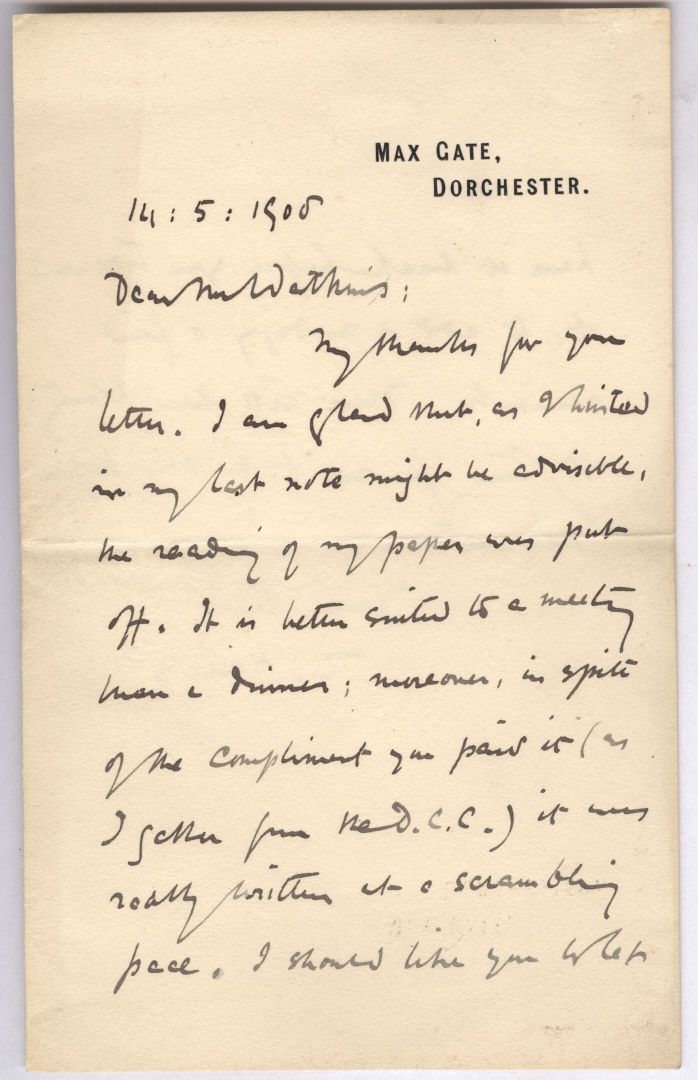 MAX GATE,
DORCHESTER.
14 : 5 : 1908
Dear Mr Watkins:
My thanks for your
letter. I am glad that, as I hinted
in my last note might be advisable,
the reading of my paper was put
off. It is better suited to a meeting
than a dinner; moreover, in spite
of the compliment you paid it (as
I gather from the D.C.C.) it was
really written at a scrambling
pace. I should like you to let